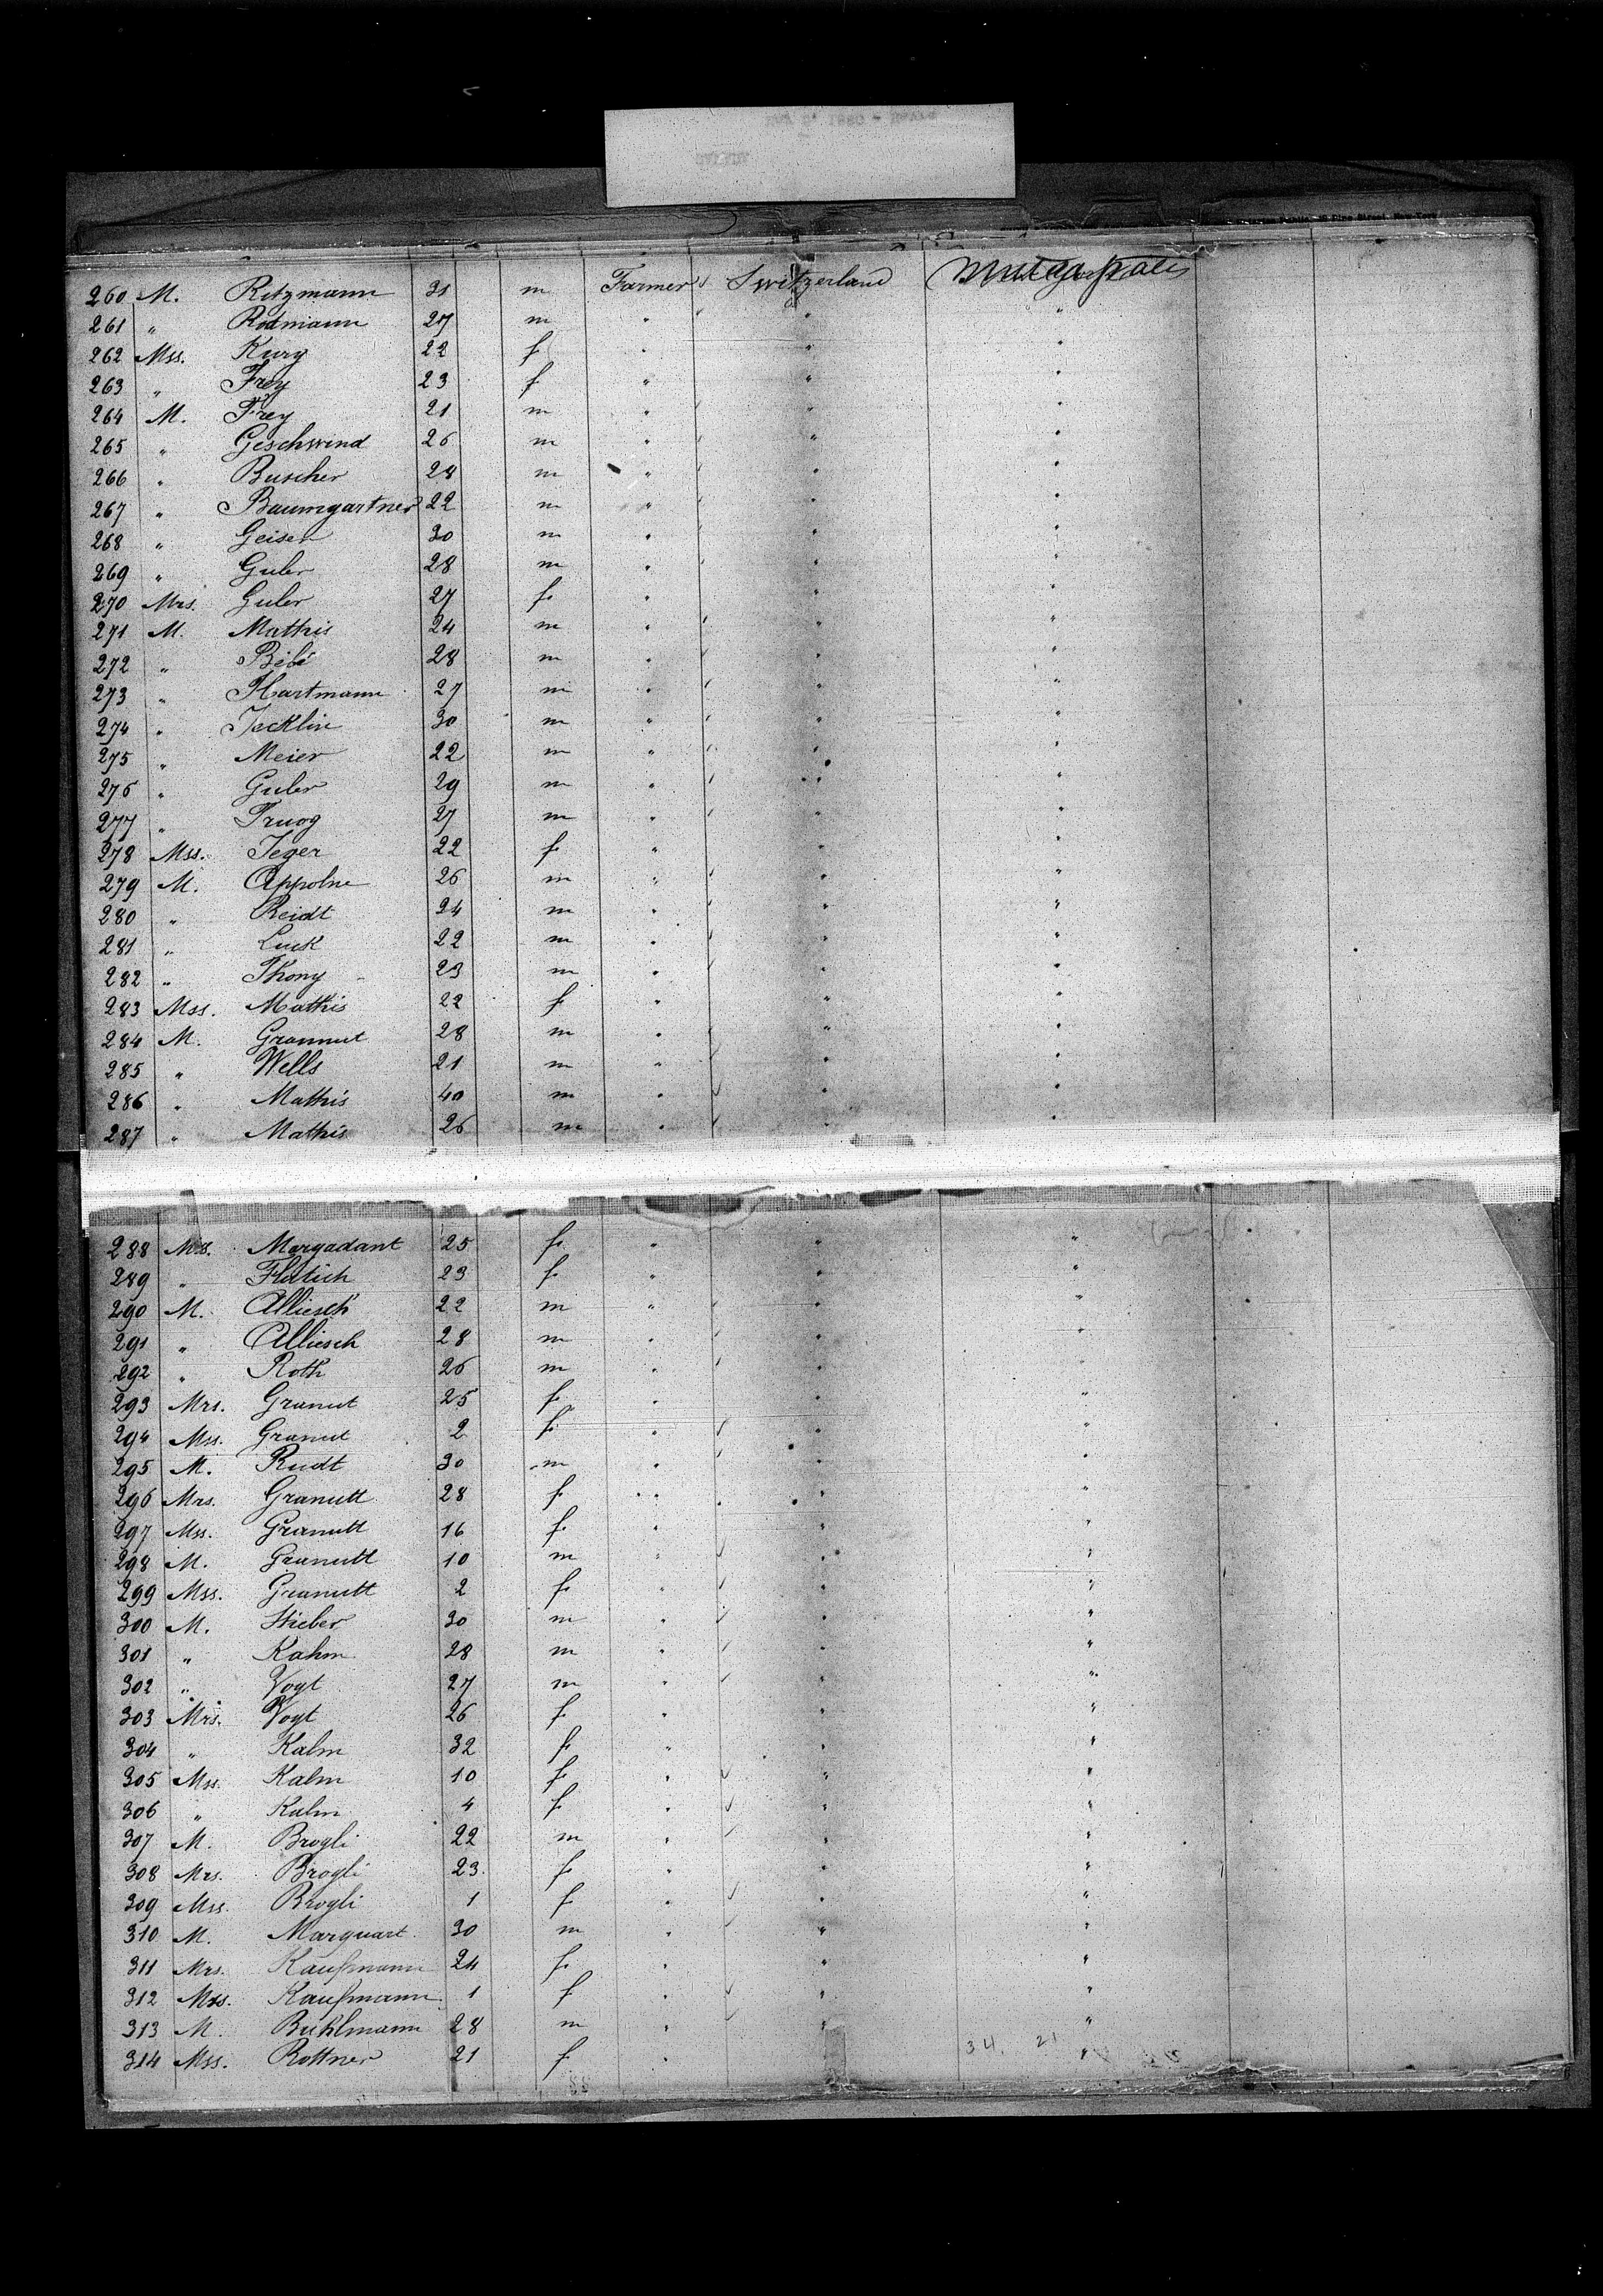 260 M. Ritzmann 31 m Farmer Switzerland
261 " Rodmann 27 m " " "
262 Mss. Kury 22 f " " "
263 " Frey 23 f " " "
264 M. Frey 21 m " " "
265 " Geschwend 26 m " " "
266 " Buscher 28 m " " "
267 " Baumgartner 22 m " " "
268 " Geiser 30 m " " "
269 " Guler 28 m " " "
270 Mrs. Guler 27 f " " "
271 M. Mathis 24 m " " "
272 " Bébé 28 m " " "
273 " Hartmann 27 m " " "
274 " Jecklin 30 m " " "
275 " Meier 22 m " " "
276 " Guler 29 m " " "
277 " Truog 27 m " " "
278 Mss. Jeger 22 f " " "
279 M. Appolne 26 m " " "
280 " Reidt 24 m " " "
281 " Luck 22 m " " "
282 " Thony 23 m " " "
283 Mss. Mathis 22 f " " "
284 M. Grannut 28 m " " "
285 " Wells 21 m " " "
286 " Mathis 40 m " " "
287 " Mathis 26 m " " "
288 Mss. Margadant 25 f " " "
289 " Flutsch 23 f " " "
290 M. Alliesch 22 m " " "
291 " Alliesch 28 m " " "
292 " Roth 26 m " " "
293 Mrs. Granut 25 f " " "
294 Mss. Granut 2 f " " "
295 M. Rudt 30 m " " "
296 Mrs. Granutt 28 f " " "
297 Mss. Granutt 16 f " " "
298 M. Granutt 10 m " " "
299 Mss. Granutt 2 f " " "
300 M. Stieber 30 m " " "
301 " Kahm 28 m " " "
302 " Vogt 27 m " " "
303 Mrs. Vogt 26 f " " "
304 " Kalm 32 f " " "
305 Mss. Kalm 10 f " " "
306 " Kalm 4 f " " "
307 M. Brogli 22 m " " "
308 Mrs. Brogli 23 f " " "
309 Mss. Brogli 1 f " " "
310 M. Marquart 30 m " " "
311 Mrs. Kaufmann 24 f " " "
312 Mss. Kaufmann 1 f " " "
313 M. Buhlmann 28 m " " "
314 Mss. Rottner 21 f " " "
34. 21